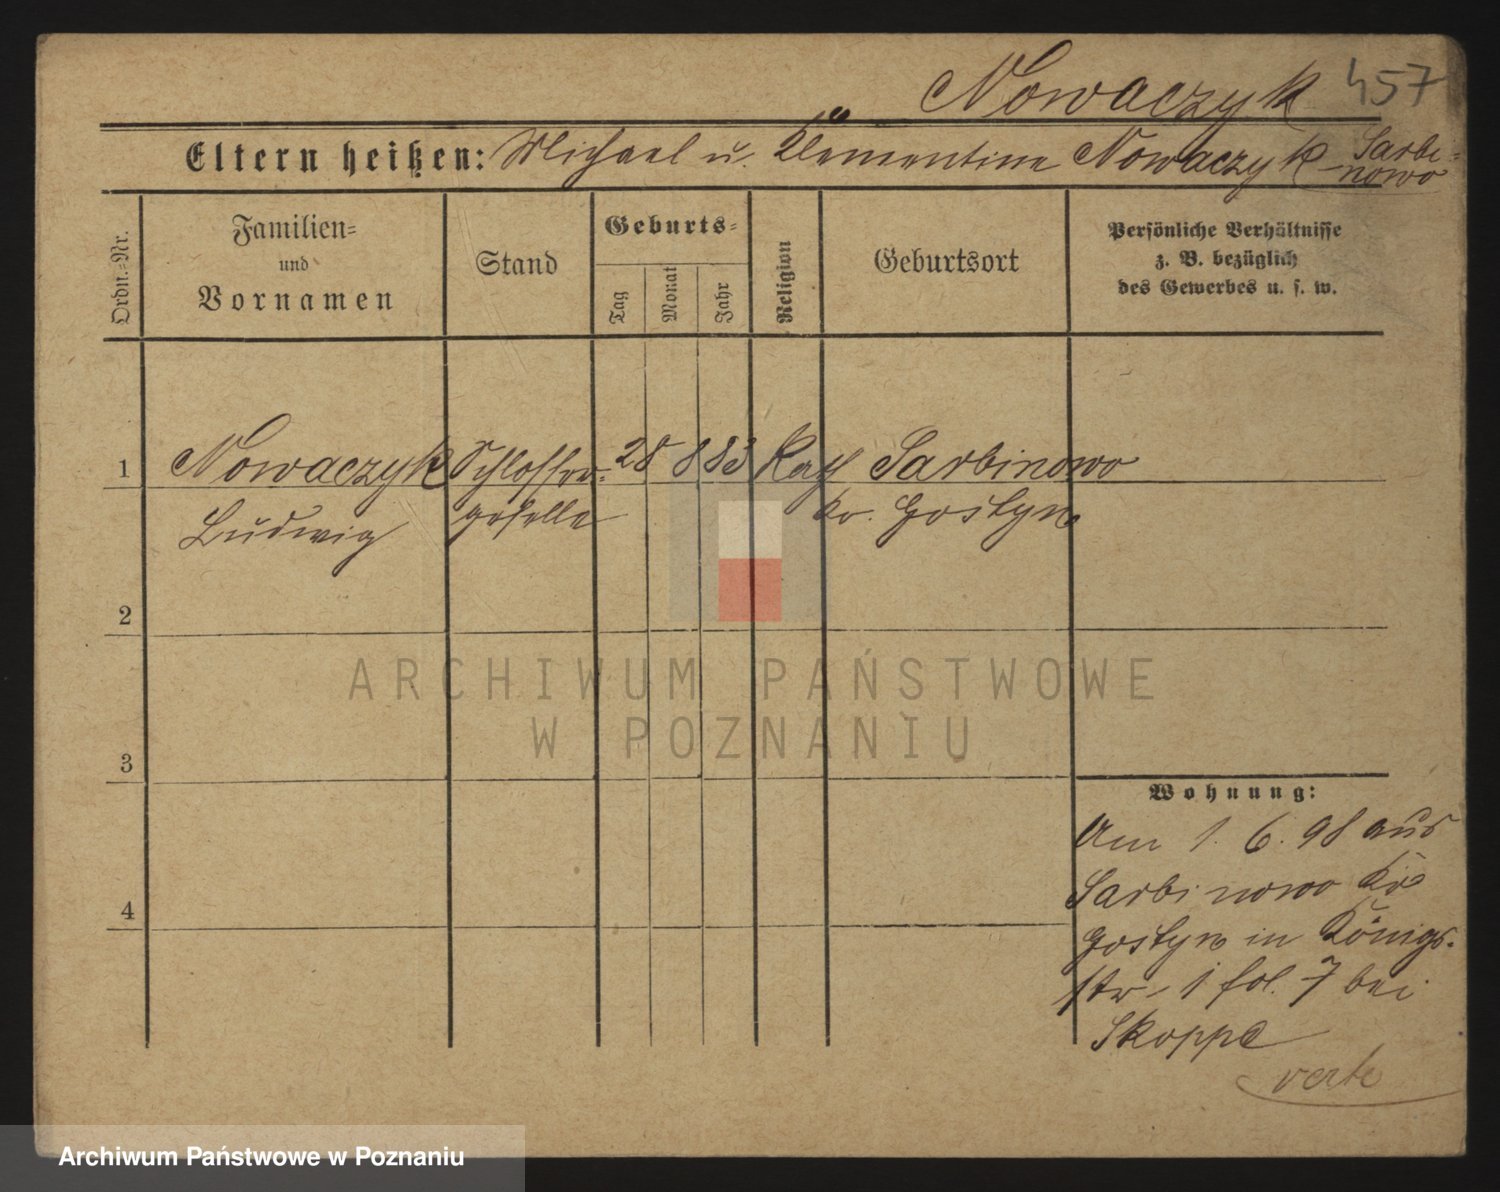 Nowaczyk 457
Eltern heißen: Michael u. Klementine Nowaczyk Sarbi-
nowo
Ordn.-Nr.
Familien-
und
Vornamen
Stand
Geburts-
Tag
Monat
Jahr
Religion
Geburtsort
Persönliche Verhältnisse
z. B. bezüglich
des Gewerbes u. s. w.
1 Nowaczyk Schlosser- 28 8 83 Kath Sarbinowo
Ludwig geselle Kr. Gostyn
2
ARCHIWUM PAŃSTWOWE
W POZNANIU
3
Wohnung:
Am 1. 6. 98 aus
Sarbinowo Kr
Gostyn in Königs-
str. 1 fol. 7 bei
Skoppe
verte
4
Archiwum Państwowe w Poznaniu